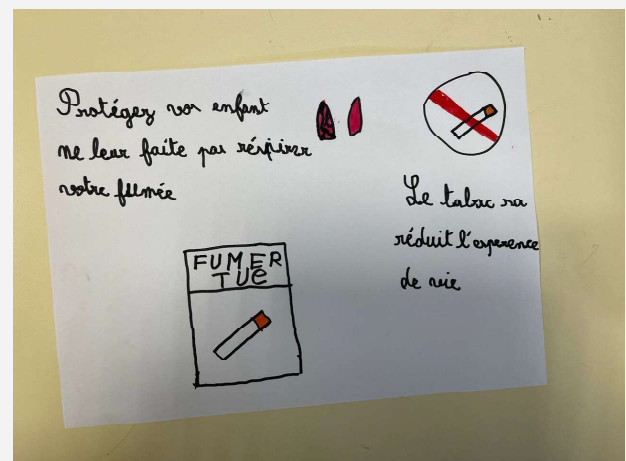 Protégez vos enfant
ne leur faite pas réspirer
votre fumée
Le tabac sa
réduit l'esperence
de vie
FUMER
TUE